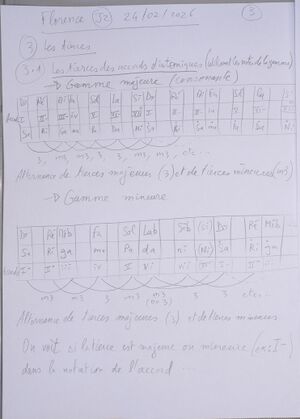 Florence (S2) 24/02/2026 (3)
(3) Les tierces
3.1) Les tierces des accords diatoniques (utilisant les notes de la gamme)
→ Gamme majeure (consonante)
Do Ré Mi Fa Sol La Si Do Ré Mi Fa Sol La Si
I II- III- IV V VI-
Sa Ri Ga ma Pa Da Ni Sa Ri Ga ma Pa
3, m3, m3, 3, 3, m3, m3, etc...
Alternance de tierces majeures (3) et de tierces mineures (m3)
→ Gamme mineure
Do Ré Mib Fa Sol Lab Sib (Si) Do Ré Mib
Sa Ri ga ma Pa da ni (Ni) Sa Ri ga
I- II- iii iv V vi vii I- II- iii
m3 m3 3 m3 m3 (ou 3) 3 3 etc...
Alternance de tierces majeures (3) et de tierces mineures
On voit si la tierce est majeure ou mineure (ex: I-)
dans la notation de l'accord ...